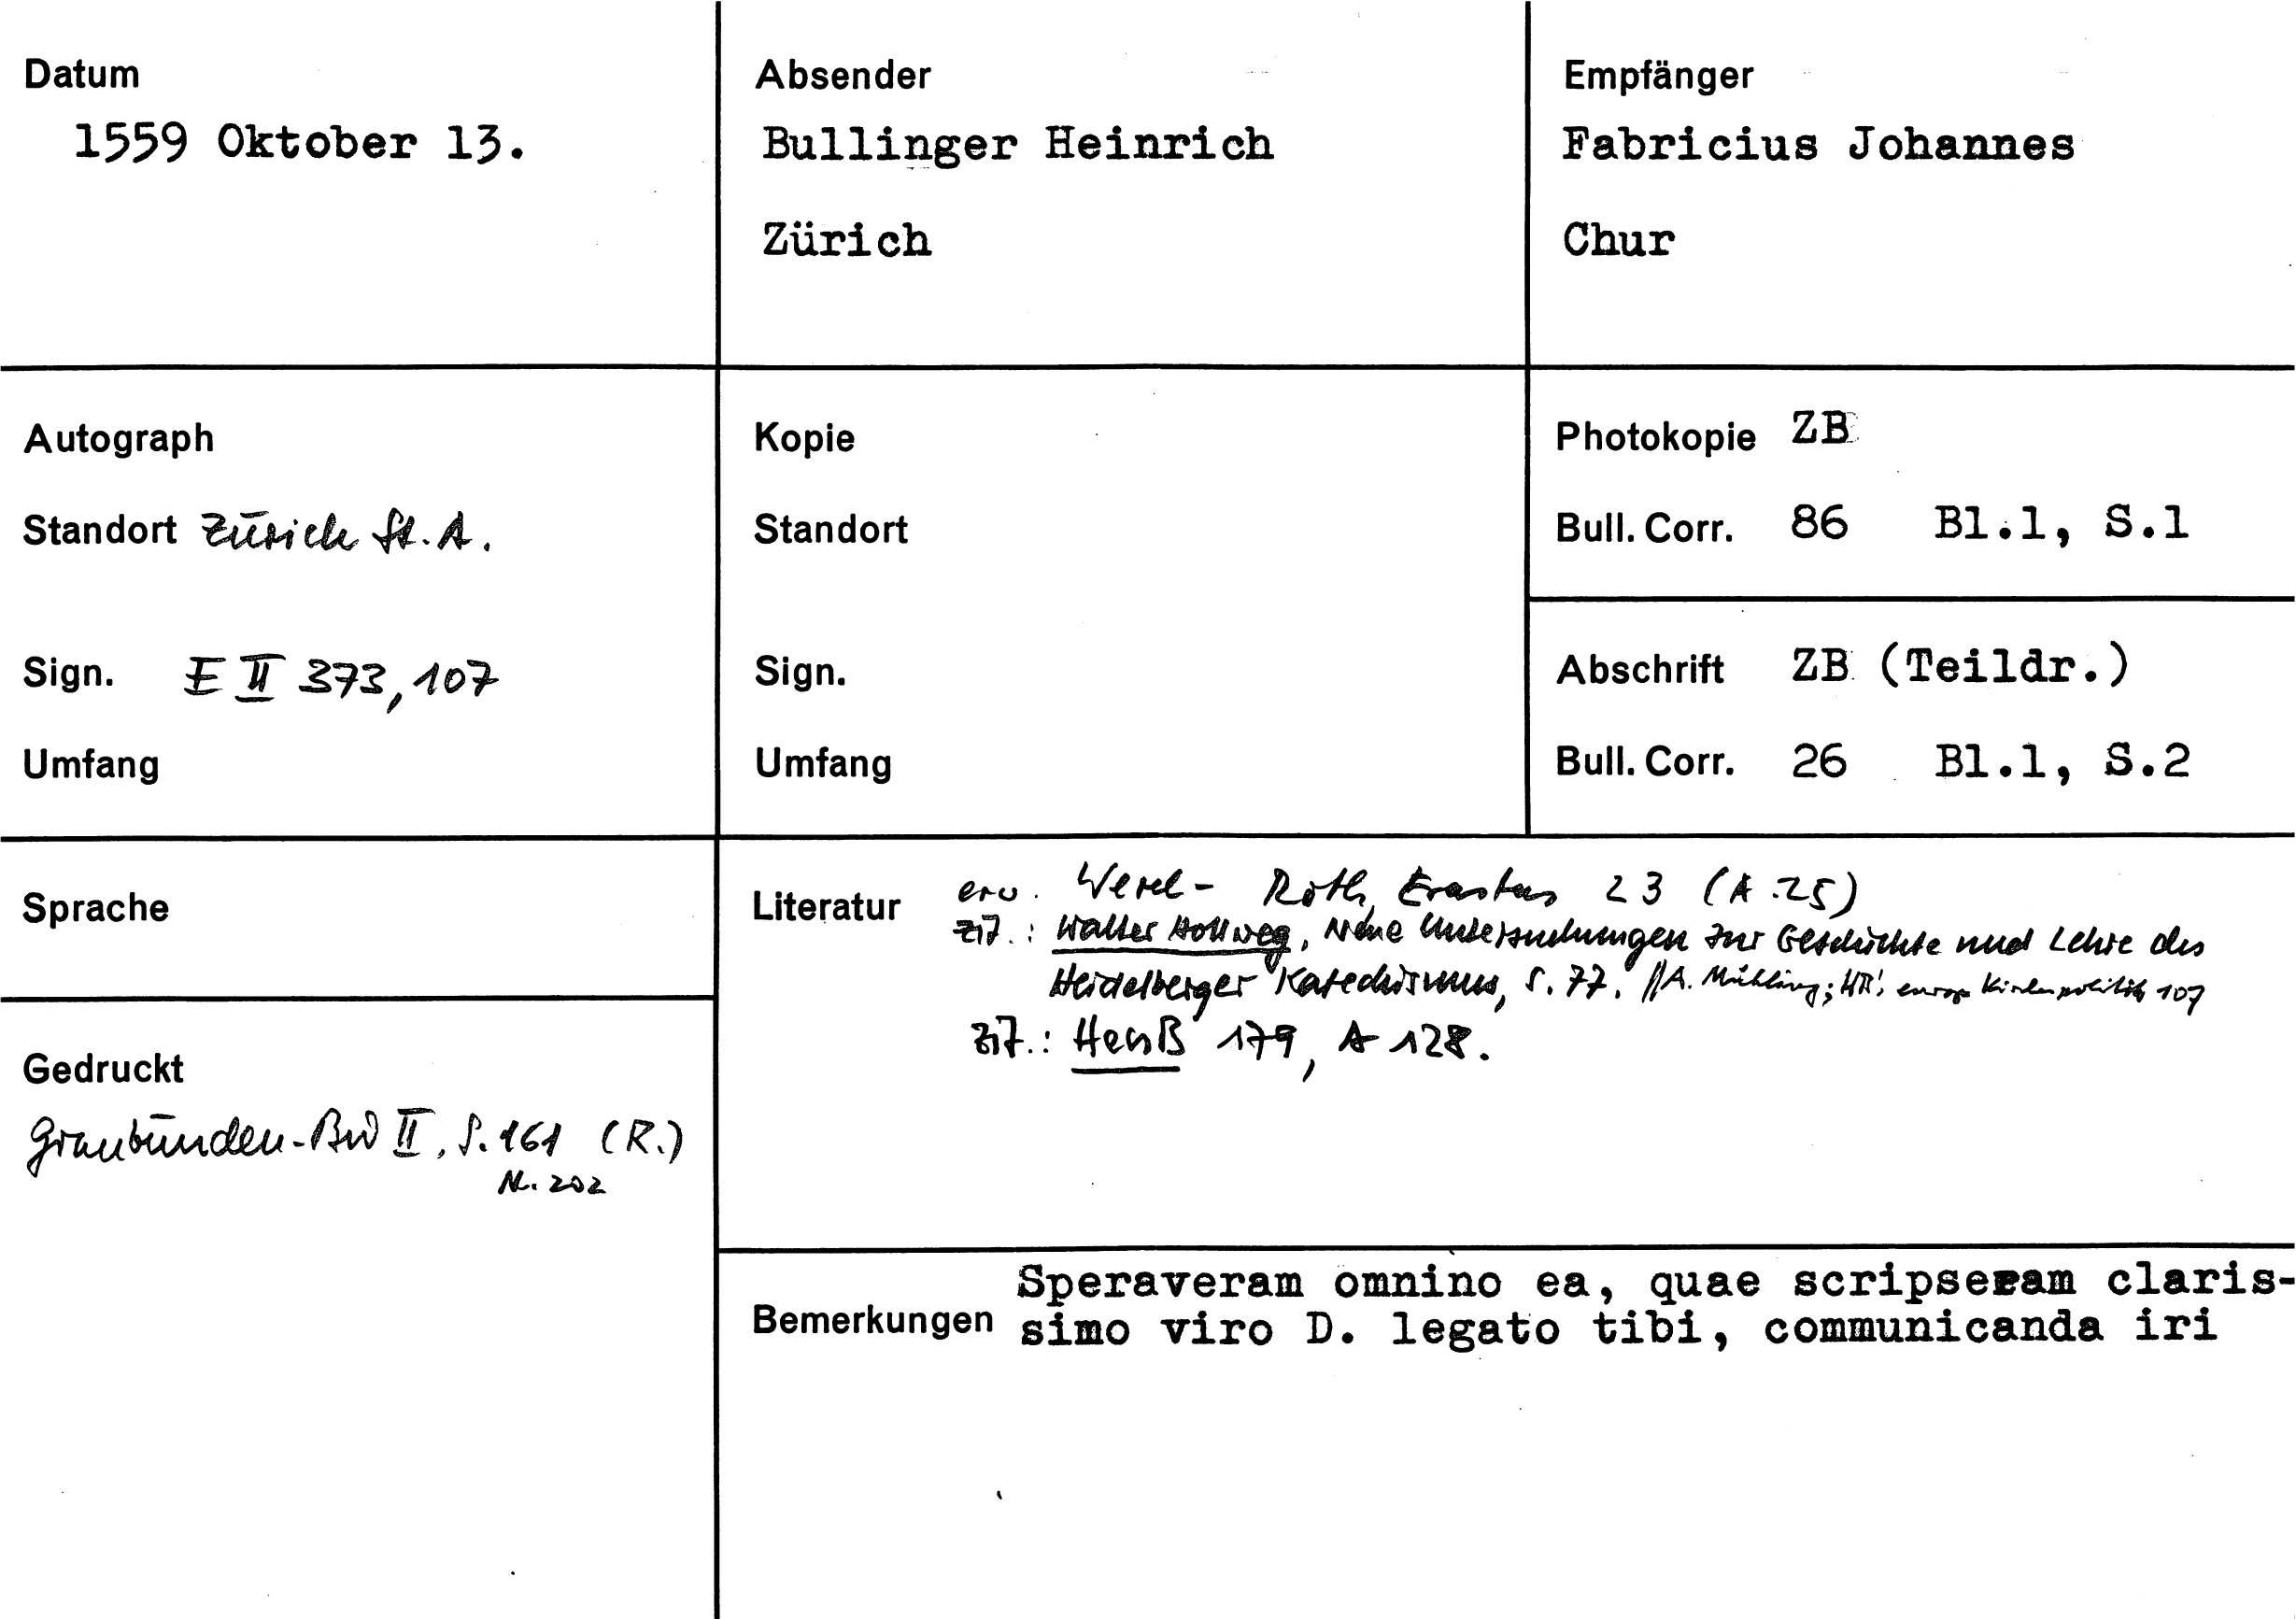 Datum
1559 Oktober 13.
Absender
Bullinger Heinrich
Zürich
Empfänger
Fabricius Johannes
Chur
Autograph
Standort Zürich St.A.
Sign. E II 373,107
Umfang
Kopie
Standort
Sign.
Umfang
Photokopie ZB
Bull. Corr. 86 Bl.1, S.1
Abschrift ZB (Teildr.)
Bull. Corr. 26 Bl.1, S.2
Sprache
Gedruckt
Graubünden-BW II, S.161 (R.)
Nr. 202
Literatur erw. Wesel-Roth, Erastus 23 (A.25)
zit.: Walter Hollweg, Neue Untersuchungen zur Geschichte und Lehre des
Heidelberger Katechismus, S. 77. // A. Mühling; HB's europ. Kirchenpolitik 107
zit.: Henß 179, A 128.
Bemerkungen Speraveram omnino ea, quae scripseram claris-
simo viro D. legato tibi, communicanda iri